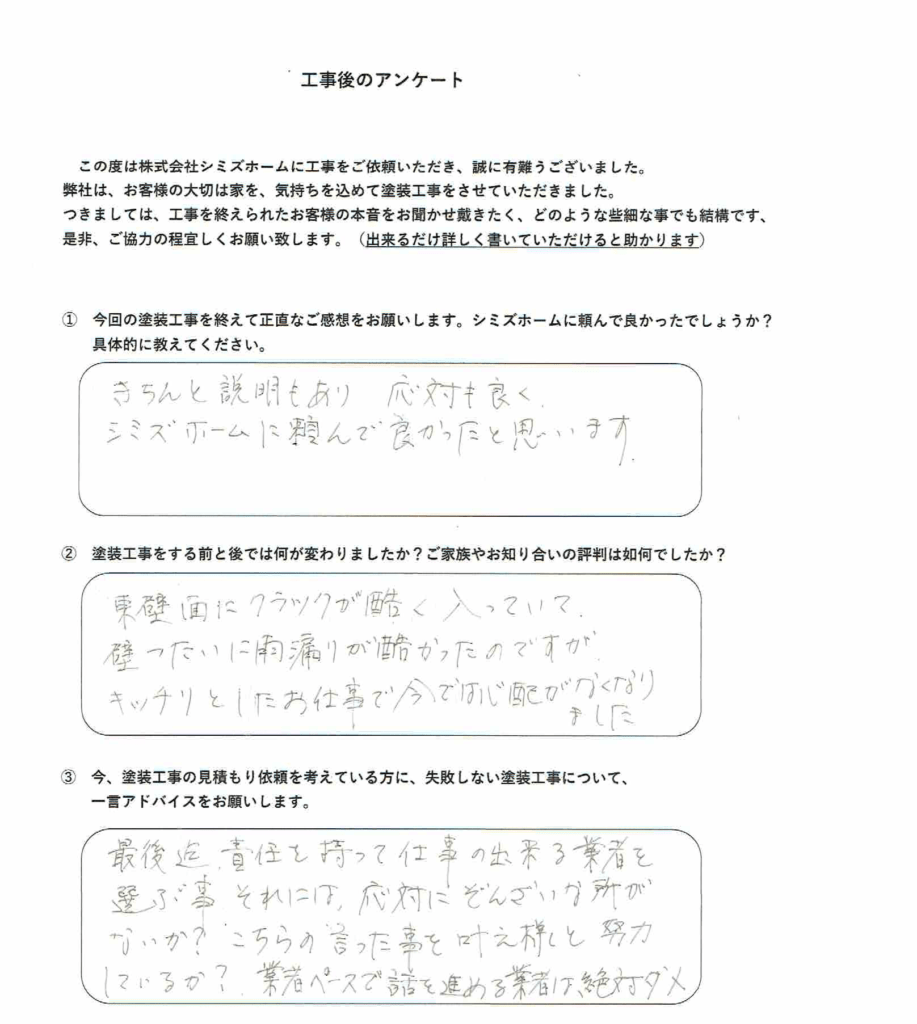 工事後のアンケート
この度は株式会社シミズホームに工事をご依頼いただき、誠に有難うございました。
弊社は、お客様の大切は家を、気持ちを込めて塗装工事をさせていただきました。
つきましては、工事を終えられたお客様の本音をお聞かせ戴きたく、どのような些細な事でも結構です、
是非、ご協力の程宜しくお願い致します。（出来るだけ詳しく書いていただけると助かります）
① 今回の塗装工事を終えて正直なご感想をお願いします。シミズホームに頼んで良かったでしょうか？
具体的に教えてください。
きちんと説明もあり 応対も良く、
シミズホームに頼んで良かったと思います。
② 塗装工事をする前と後では何が変わりましたか？ご家族やお知り合いの評判は如何でしたか？
東壁面にクラックが酷く入っていて、
壁つたいに雨漏りが酷かったのですが、
キッチリとしたお仕事で今では心配がなくなり
ました
③ 今、塗装工事の見積もり依頼を考えている方に、失敗しない塗装工事について、
一言アドバイスをお願いします。
最後迄、責任を持って仕事の出来る業者を
選ぶ事 それには、応対にぞんざいな所が
ないか？ こちらの言った事を叶え様しと努力
しているか？ 業者ペースで話を進める業者は、絶対ダメ